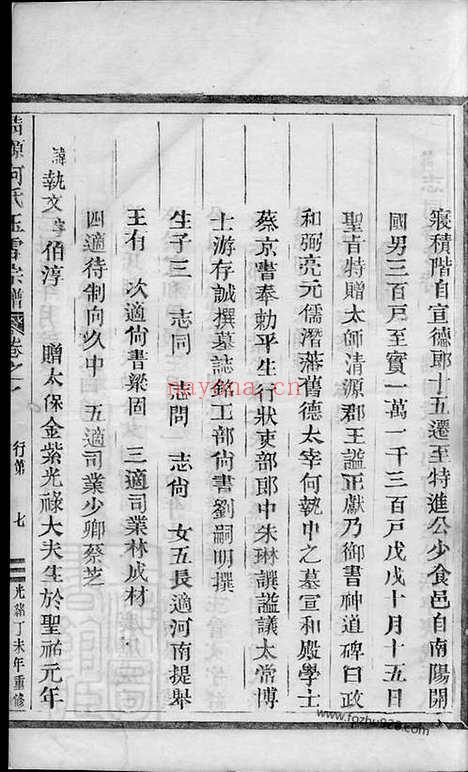 寢積階自宣德郎十五遷至特進公少食邑自南陽開
國男三百戶至實一萬一千三百戶戊戌十月十五日
聖旨特贈太師清源郡王謚正獻乃御書神道碑曰政
和弼亮元儒潛藩舊德太宰何執中之墓宣和殿學士
蔡京書奉勅平生行狀吏部郎中朱琳譔謚議太常博
士游存誠撰墓誌銘工部尙書劉嗣明撰
生子三 志同 志問 志尙 女五長適河南提舉
王有 次適尙書梁固 三適司業林成材
四適待制向久中 五適司業少卿蔡芝
諱執文字伯淳 贈太保金紫光祿大夫生於聖祐元年
清源何氏玉雪宗譜 卷之 行第 七 光緒丁未年重修
nayona.cn
www.fozhu920.com